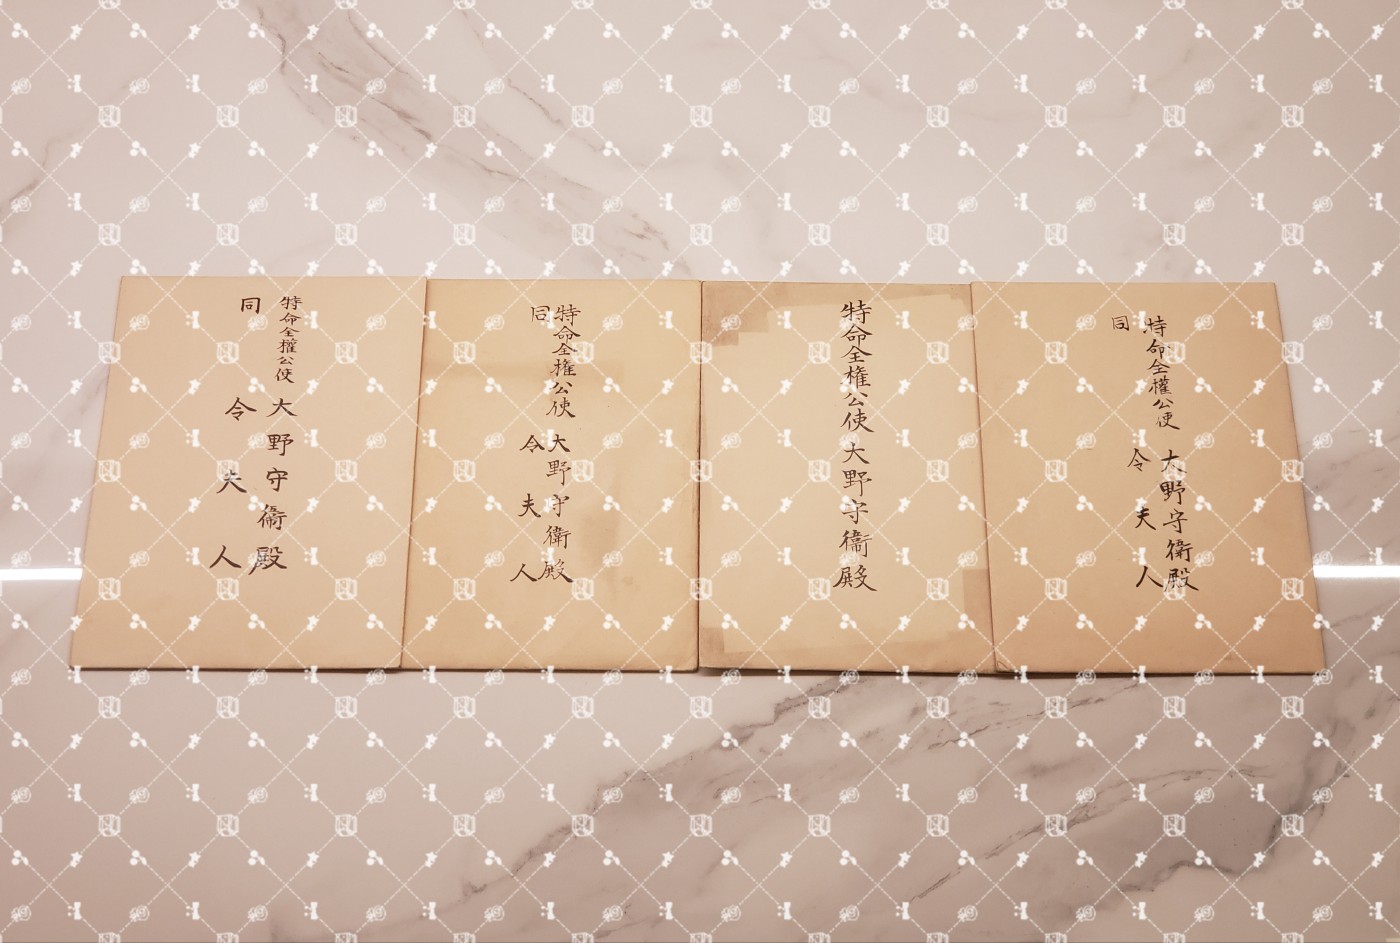 特命全權公使 大野守衞殿
同 令夫人
特命全権公使 大野守衛殿
同 令夫人
特命全権公使 大野守衞殿
特命全權公使 大野守衛殿
同 令夫人